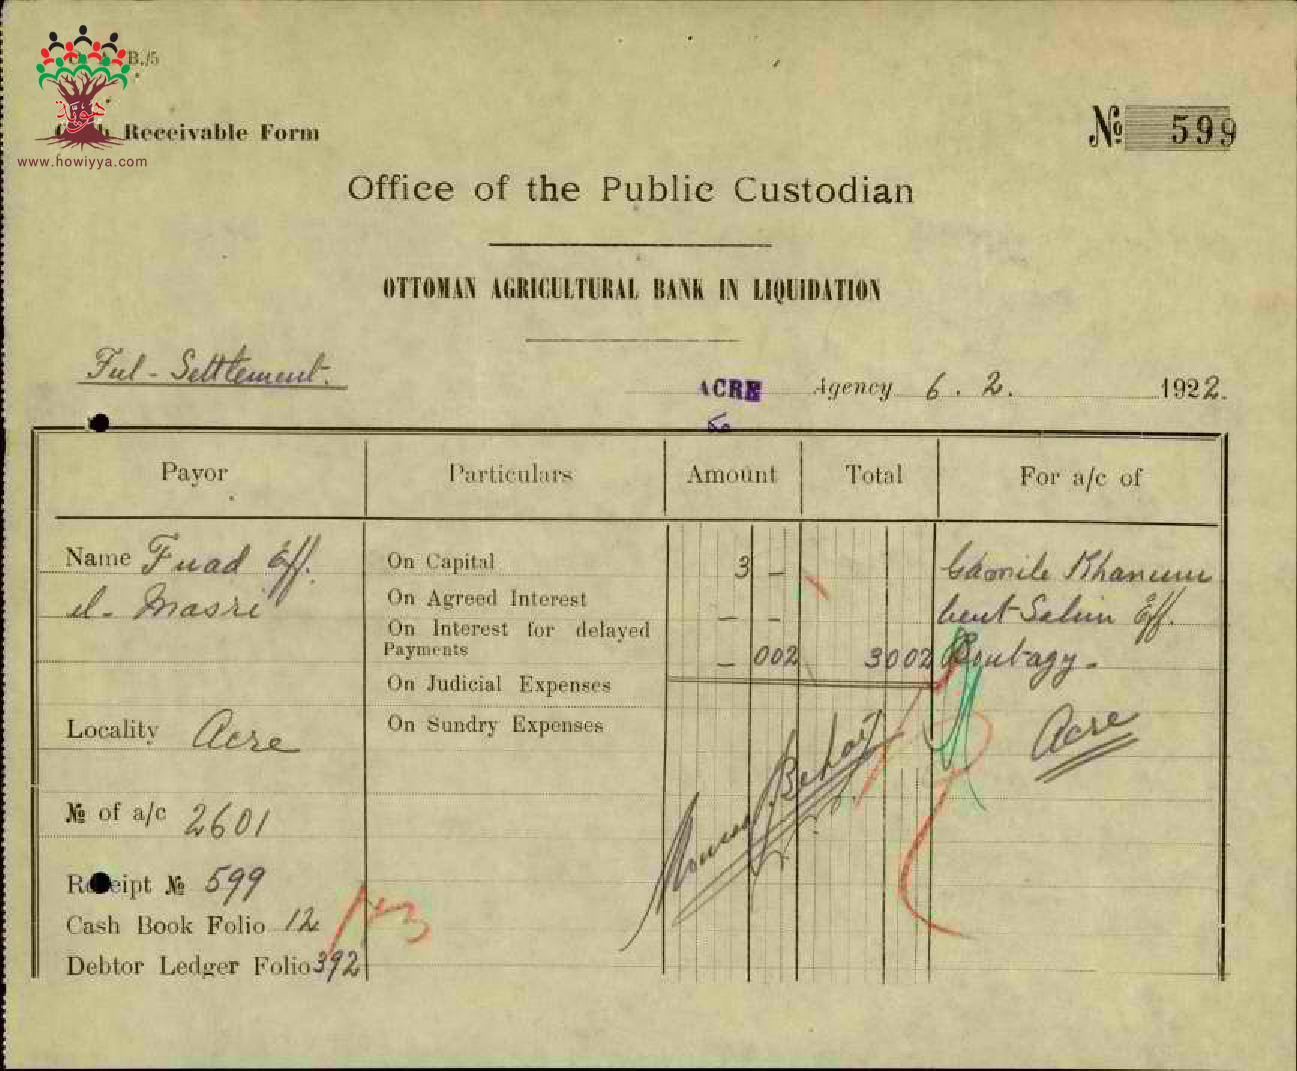 B./5
هوية
www.howiyya.com
Receivable Form
№ 599
Office of the Public Custodian
OTTOMAN AGRICULTURAL BANK IN LIQUIDATION
Ful-Settlement.
ACRE Agency 6.2. 1922.
Payor Particulars Amount Total For a/c of
Name Fuad Eff. On Capital 3 - Khanum
el-Masri On Agreed Interest - - bent Salim Eff.
On Interest for delayed
Payments - 002 3 002
On Judicial Expenses
Locality Acre On Sundry Expenses Acre
№ of a/c 2601
Receipt № 599
Cash Book Folio 12
Debtor Ledger Folio 392